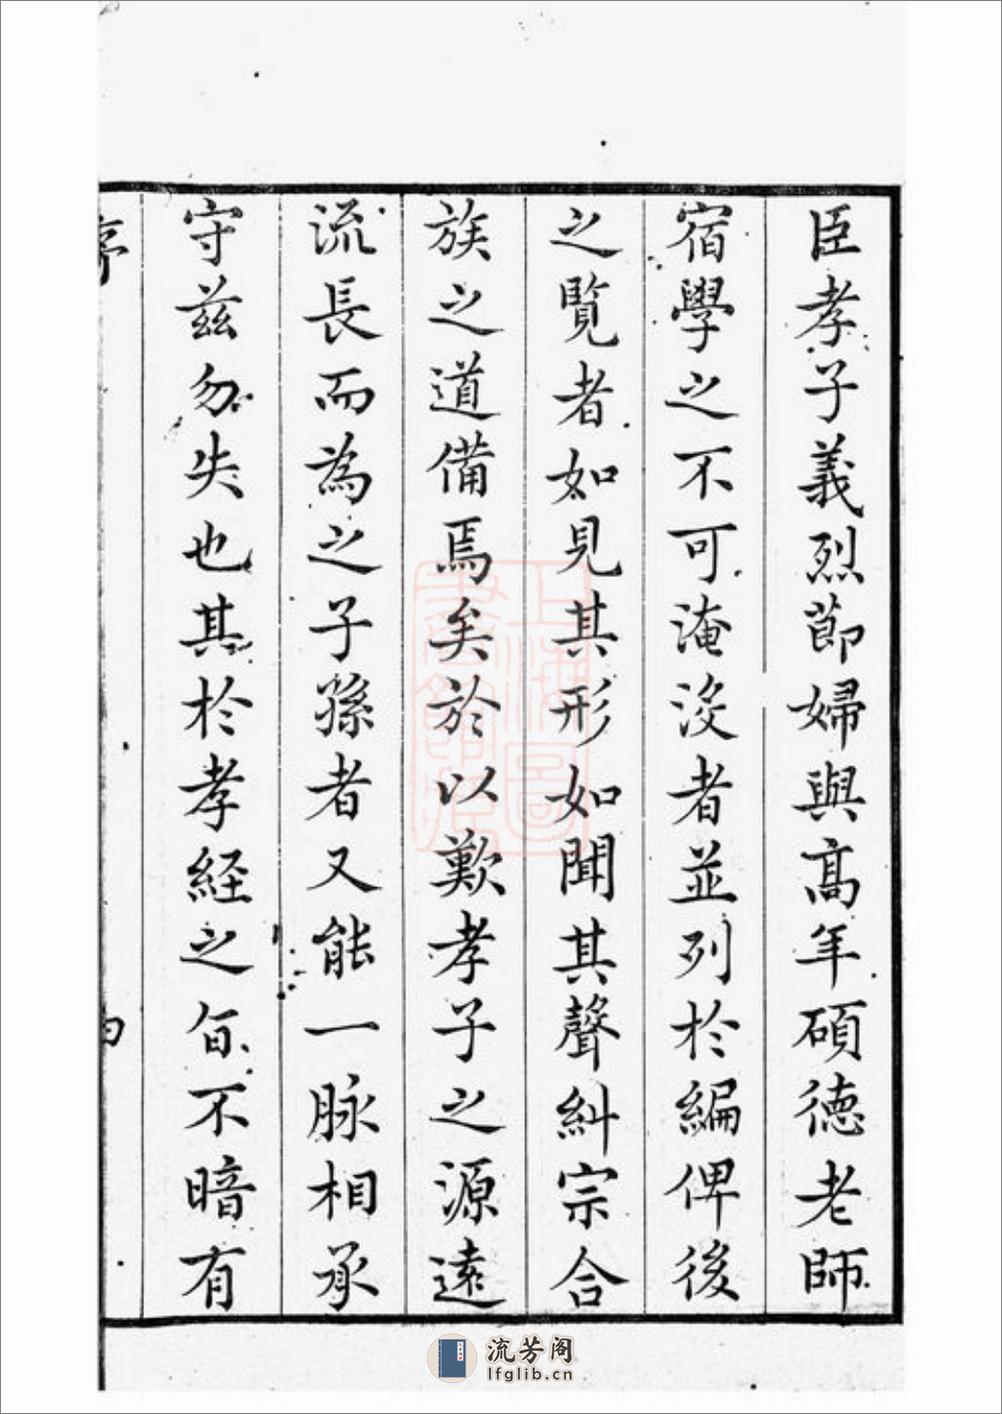 臣孝子義烈節婦與髙年碩徳老師
宿學之不可淹没者並列於編俾後
之覧者如見其形如聞其聲糾宗合
族之道備焉矣於以歎孝子之源逺
流長而為之子孫者又能一脉相承
守兹勿失也其於孝経之旨不暗有
序
上海圖
書館藏
流芳阁
lfglib.cn